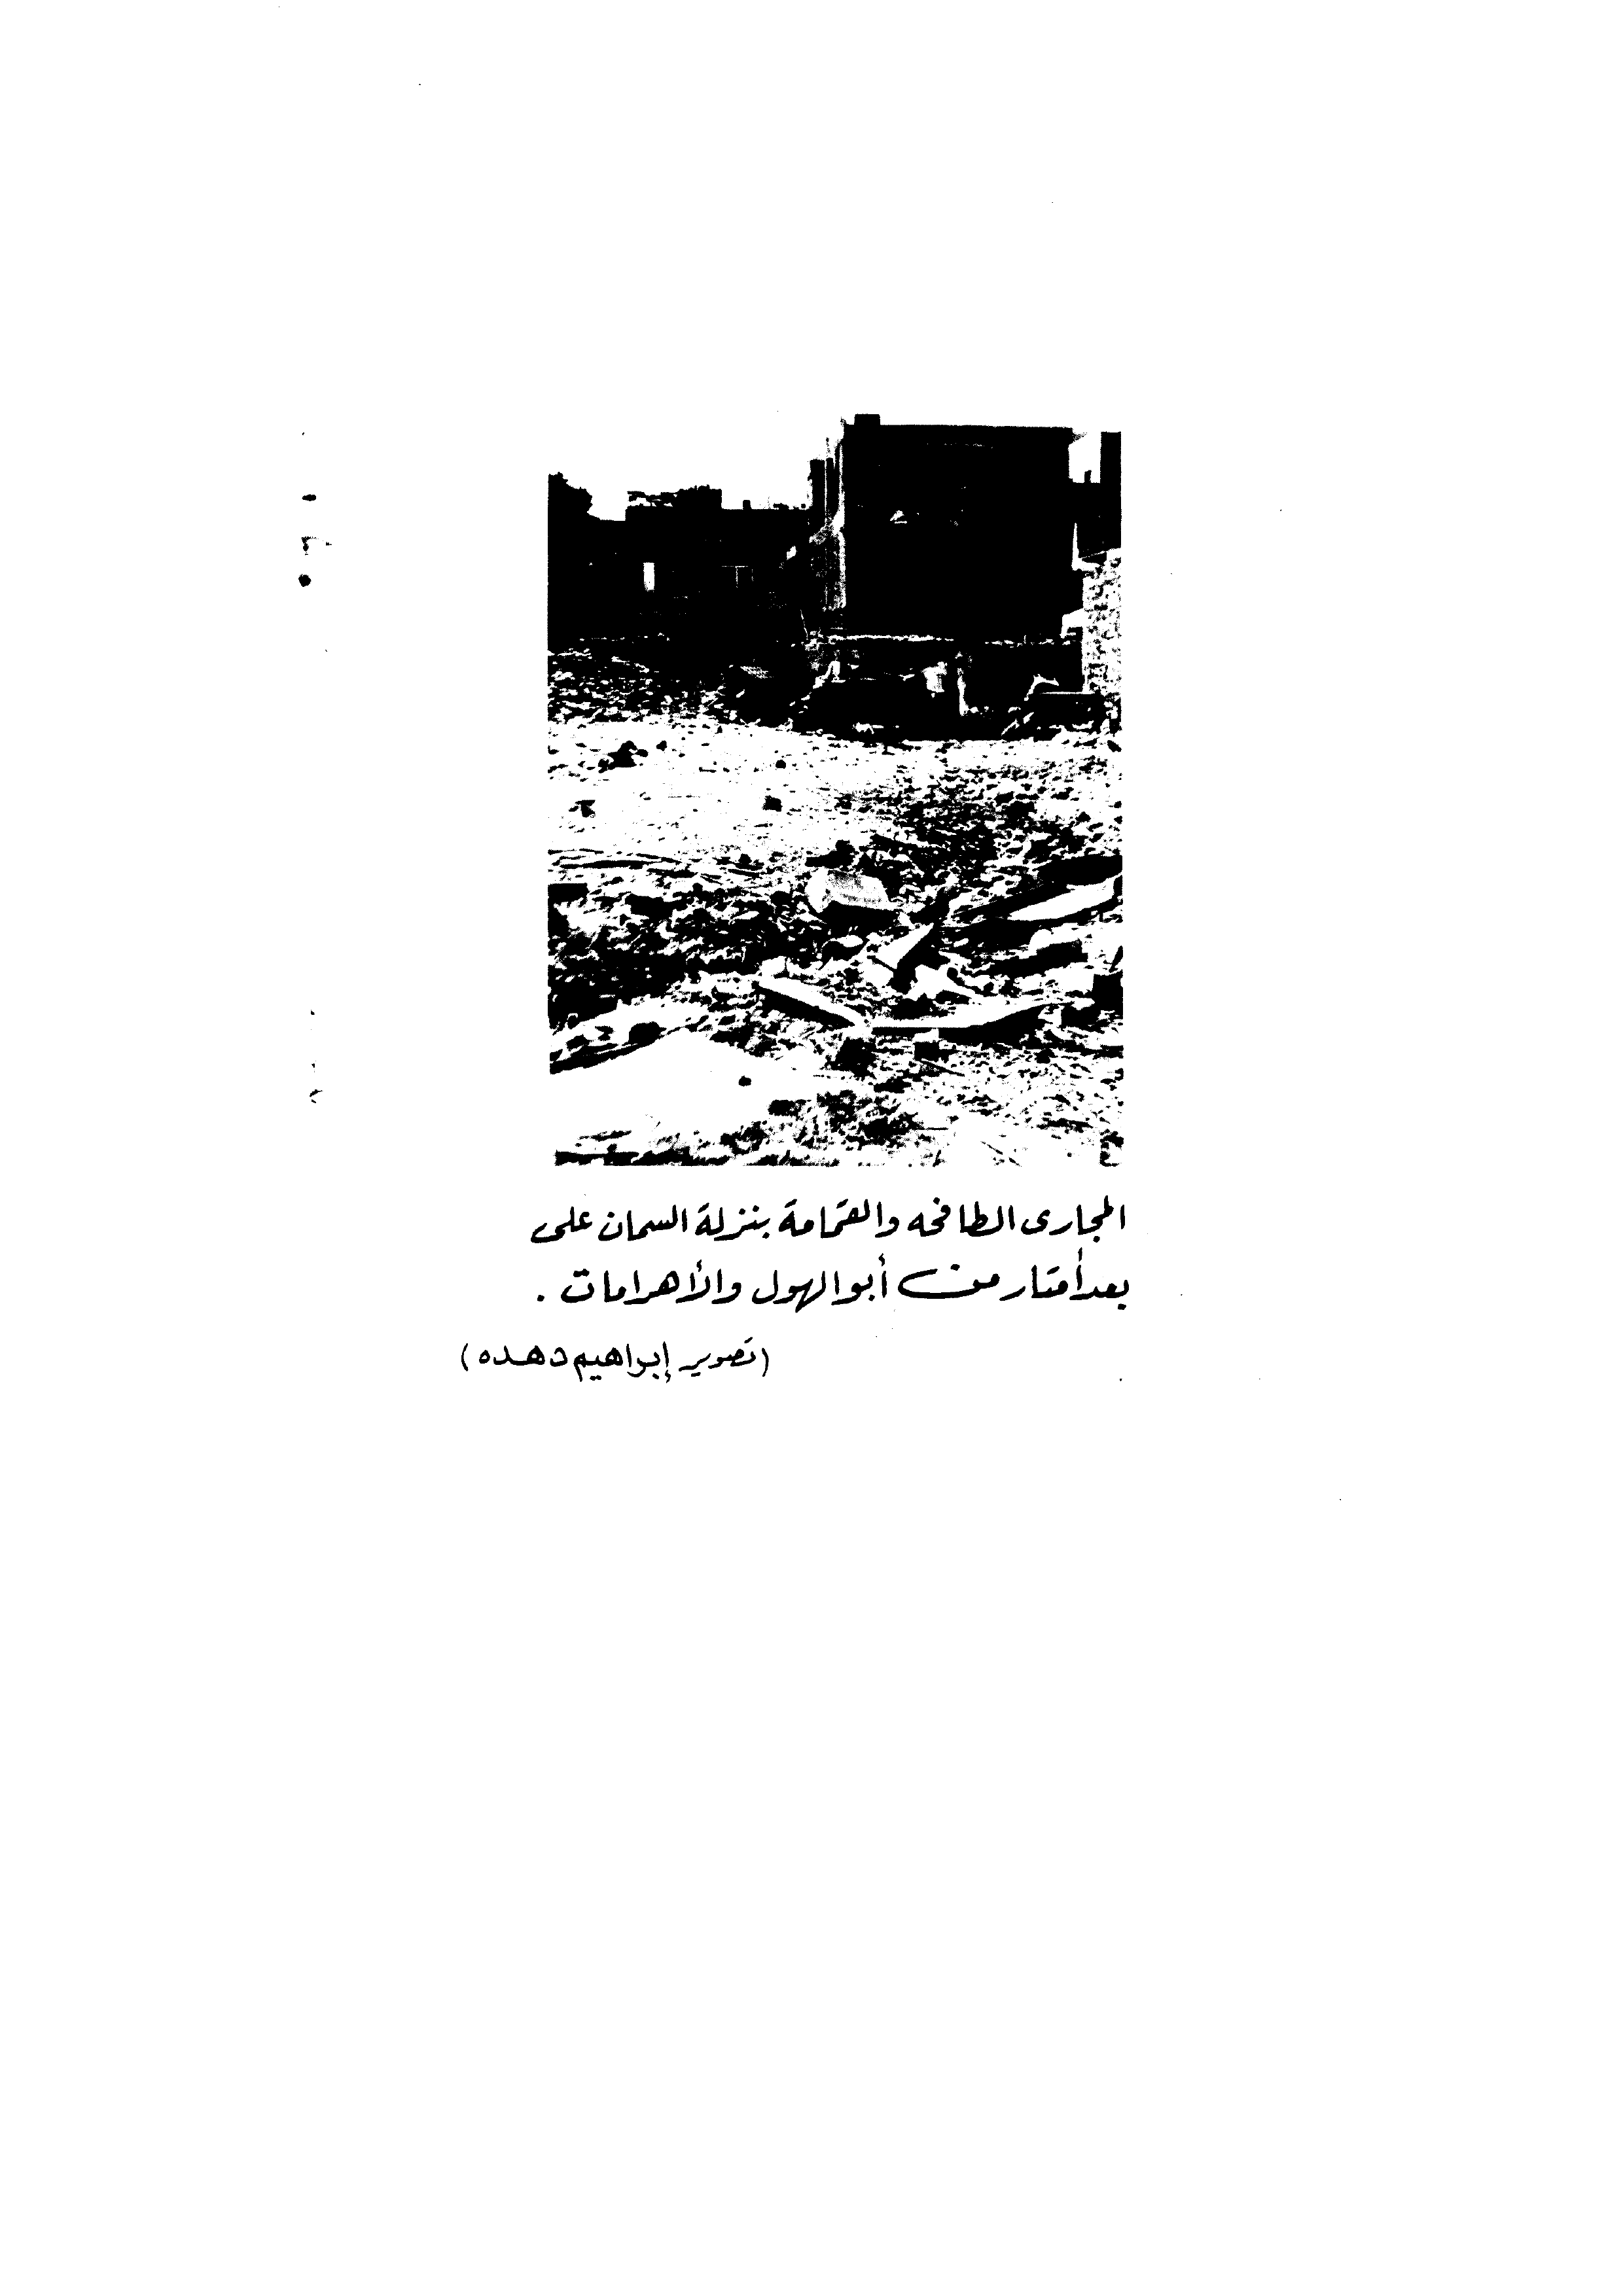 المجارى الطافحه والقمامة بنزلة السمان على
بعد أمتار من أبو الهول والأهرامات .
(تصوير إبراهيم دهده)